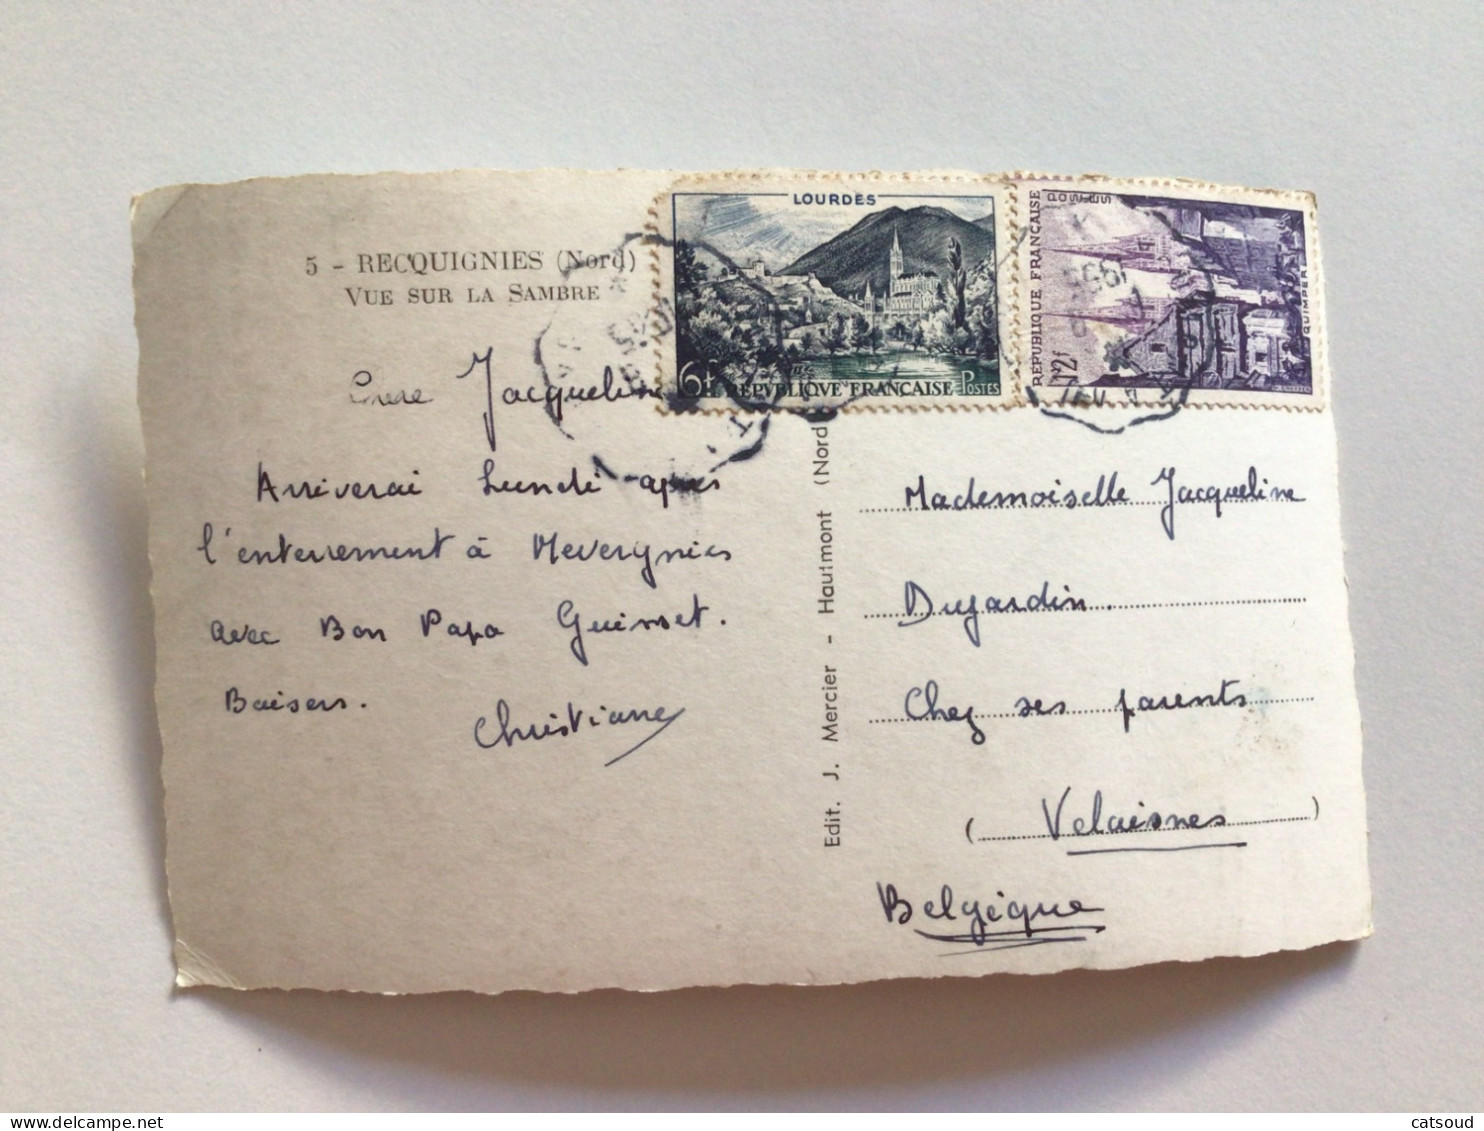 5 - RECQUIGNIES (Nord)
VUE SUR LA SAMBRE
LOURDES
6f RÉPUBLIQUE FRANÇAISE POSTES
RÉPUBLIQUE FRANÇAISE
POSTES
12f
QUIMPER
1955
Chère Jacqueline
Arriverai Lundi après
l'enterrement à Mévergnies
avec Bon Papa Guinset.
Baisers.
Christiane
Edit. J. Mercier - Hautmont (Nord
Mademoiselle Jacqueline
Dujardin.
Chez ses parents
(Velaisnes)
Belgique
delcampe.net
catsoud